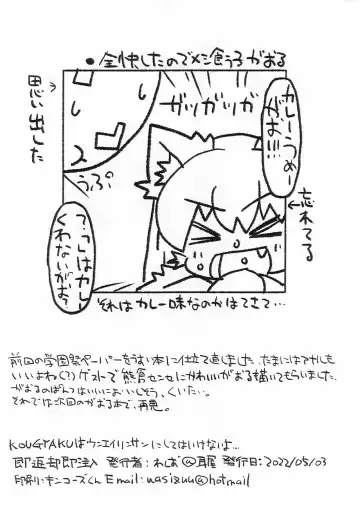 ●全快したのでメシ食うろがおる
思い出した
ガツガツガツ
カレーうめーがお!!!
うぷ。
忘れてる
くわないがお?
それはカレー味なのかはてさて…
前回の学園祭ペーパーをうすい本に仕立て直しました。たまにはアナルも
いいよね(?)ゲストで熊食センセにかわいいがおる描いてもらいました。
がおるのぱんつはいいにおいしそう、くいたい。
それでは次回のがおる本で、再悪。
KOUGYAKUはウンエイリンサンにしてはいけないよ…
即返却即注入 発行者:わしば@耳屋 発行日:2022/05/03
印刷:キンコーズくん Email:wasizuu@hotmail